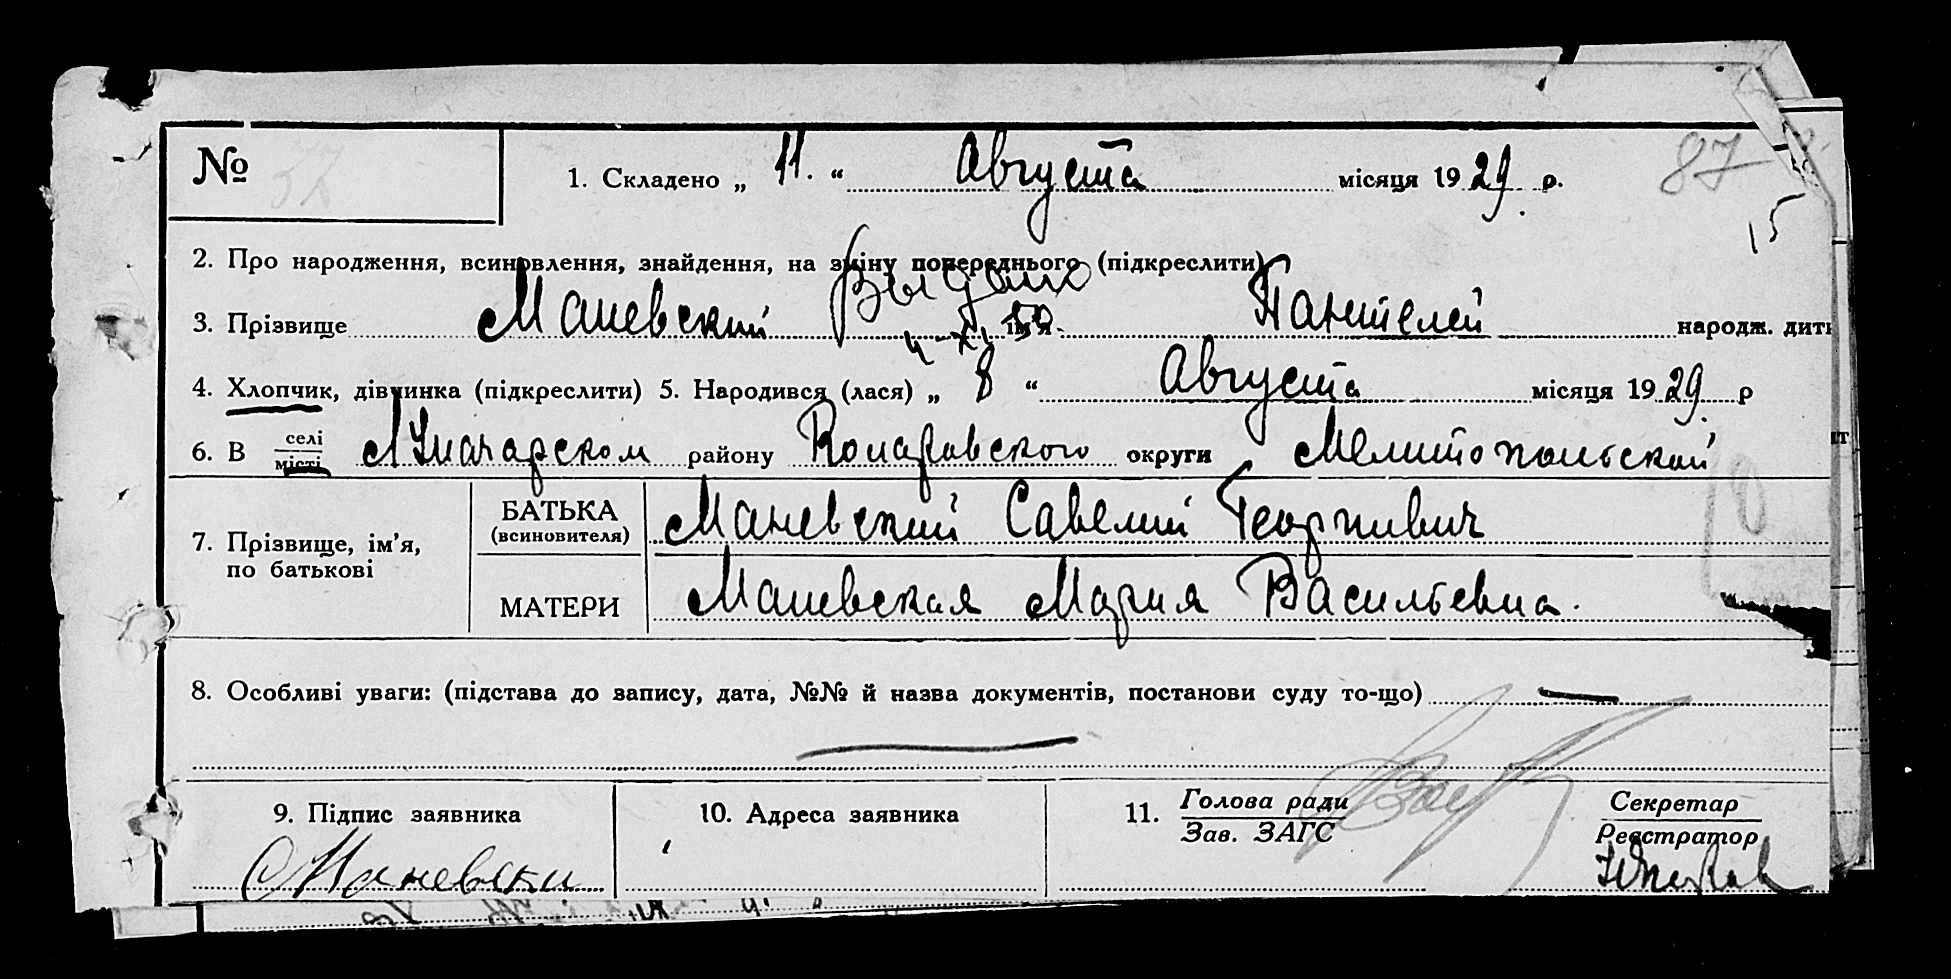 № 1. Складено „ 11. “ Августа місяця 1929 р. 87
15
2. Про народження, всиновлення, знайдення, на зміну попереднього (підкреслити)
Выдано
3. Прізвище Маневский ім'я Пантелей народж. дить
4. Хлопчик, дівчинка (підкреслити) 5. Народився (лася) „ 8 “ Августа місяця 1929 р
6. В селі місті Луначарском району Коларовского округи Мелитопольской
7. Прізвище, ім’я, по батькові
БАТЬКА (всиновителя) Маневский Савелий Георгиевич
МАТЕРИ Маневская Мария Васильевна.
8. Особливі уваги: (підстава до запису, дата, №№ й назва документів, постанови суду то-що)
9. Підпис заявника 10. Адреса заявника 11. Голова ради Зав. ЗАГС Секретар Реєстратор
Маневски